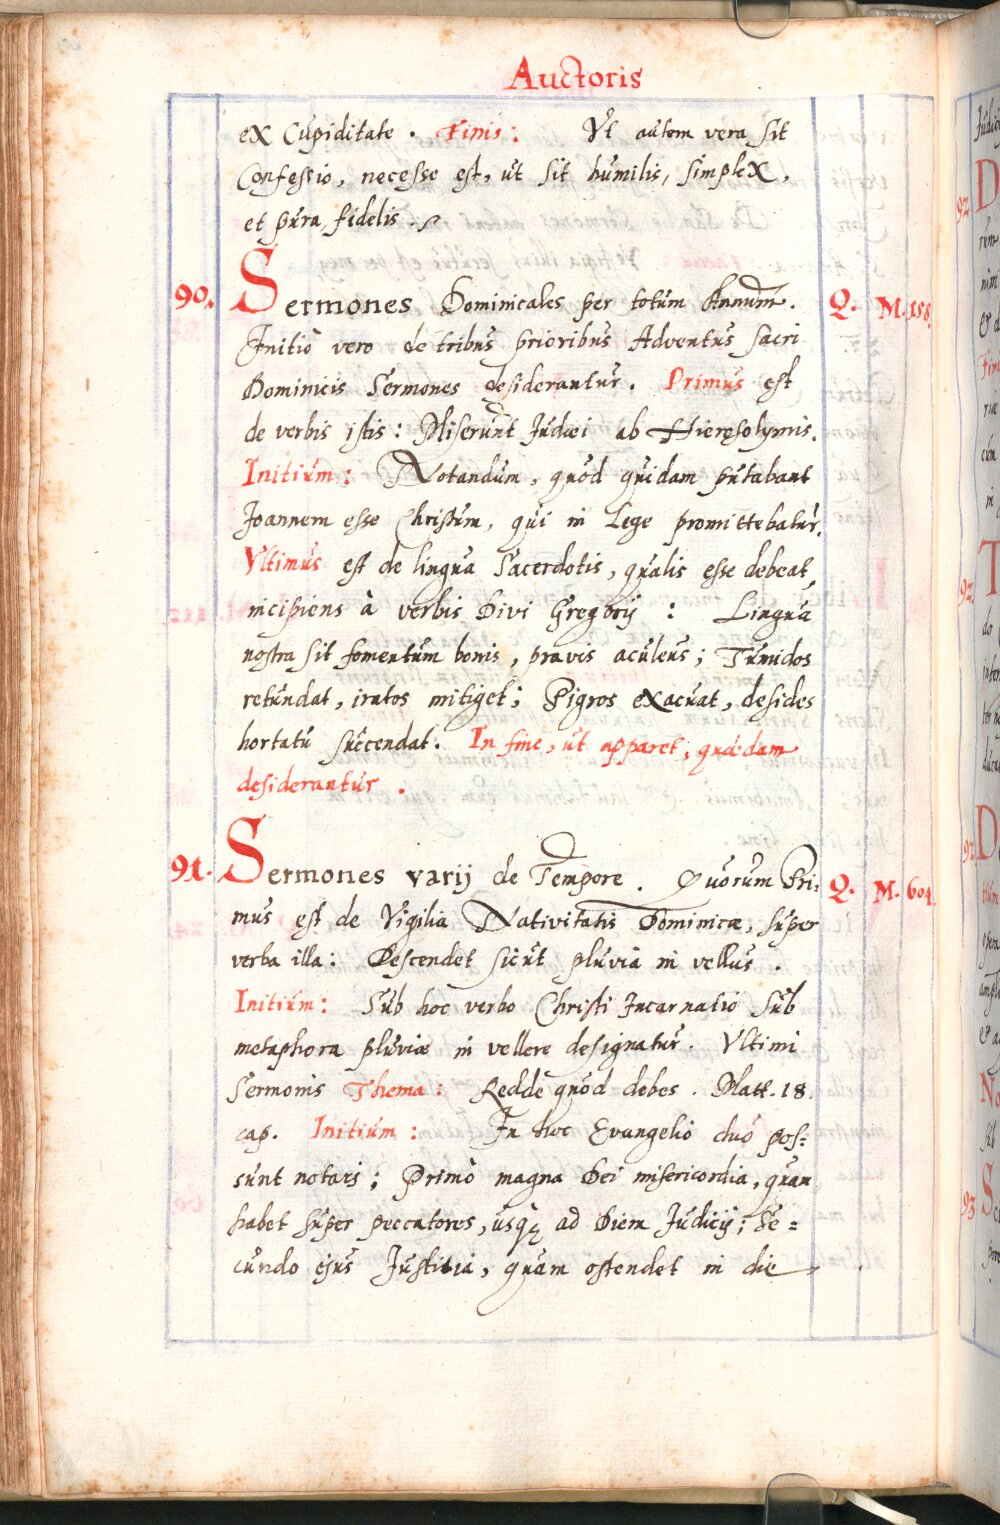 Auctoris
ex Cupiditate. Finis: Vt autem vera sit
Confessio, necesse est, ut sit humilis, simplex,
et pura, fidelis.
90. Sermones Dominicales per totum Annum. Q. M. 158.
Initio vero de tribus prioribus Adventus sacri
Dominicis Sermones desiderantur. Primus est
de verbis istis: Miserunt Judæi ab Hierosolymis.
Initium: Notandum, quòd quidam putabant
Joannem esse Christum, qui in Lege promittebatur.
Vltimus est de lingua Sacerdotis, qualis esse debeat,
incipiens à verbis Divi Gregorij: Lingua
nostra sit fomentum bonis, pravis aculeus; Tumidos
retundat, iratos mitiget; Pigros exacuat, desides
hortatu succendat. In fine, ut apparet, quædam
desiderantur.
91. Sermones varij de Tempore. Quorum Pri: Q. M. 604.
mus est de Vigilia Nativitatis Dominicæ, super
verba illa: Descendet sicut pluvia in vellus.
Initium: Sub hoc verbo Christi Incarnatio sub
metaphora pluviæ in vellere designatur. Vltimi
Sermonis Thema: Redde quod debes. Matt. 18.
cap. Initium: In hoc Evangelio duo pos:
sunt notari; Primò magna Dei misericordia, quam
habet super peccatores, usq; ad Diem Judicij; Se=
cundo ejus Justitia, quam ostendet in die